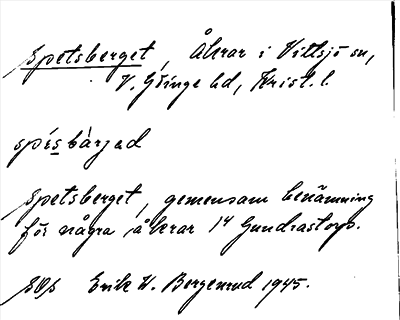 Spetsberget, Åkrar i Vittsjö sn,
V. Göinge hd, Krist. l.
spésbàrjad
Spetsberget, gemensam benämning
för några åkrar 14 Gundrastorp.
Erik W. Bergenrud 1945.